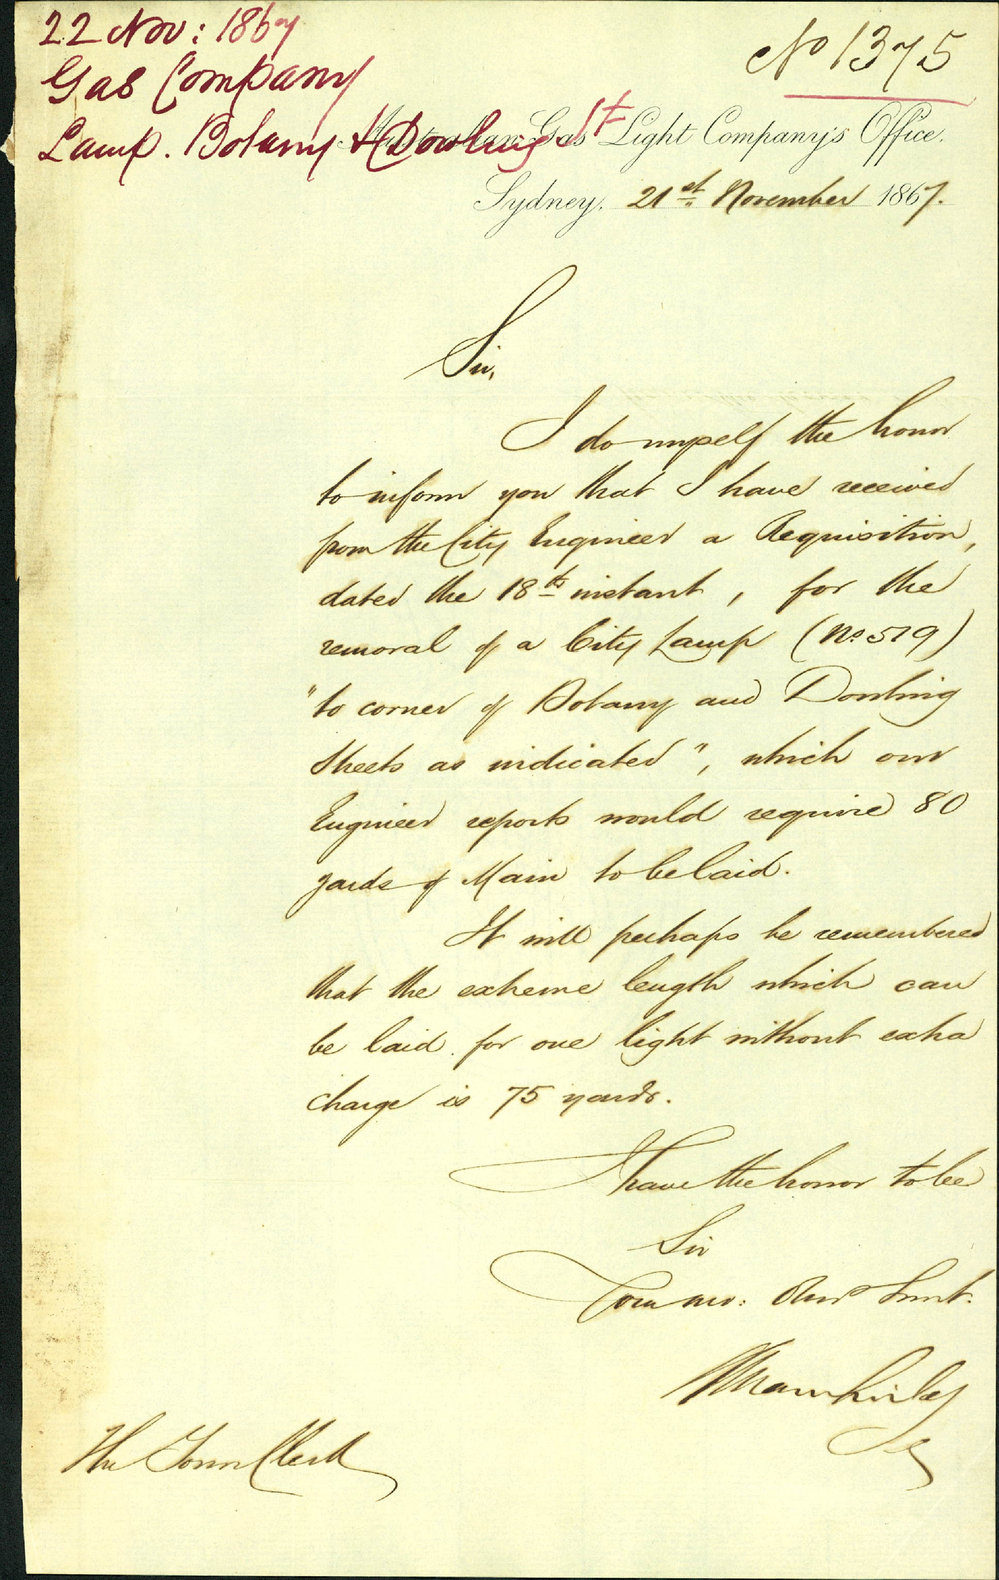 22 Nov: 1867
Gas Company
Lamp. Botany & Dowling St
No 1375
Australian Gas Light Company's Office.
Sydney. 21st November 1867.
Sir,
I do myself the honor
to inform you that I have received
from the City Engineer a Requisition,
dated the 18th instant, for the
removal of a City Lamp (No. 519)
"to corner of Botany and Dowling
Streets as indicated", which our
Engineer reports would require 80
yards of Main to be laid.
It will perhaps be remembered
that the extreme length which can
be laid for one light without extra
charge is 75 yards.
I have the honor to be
Sir
Your mo: Obt Servt.
The Town Clerk